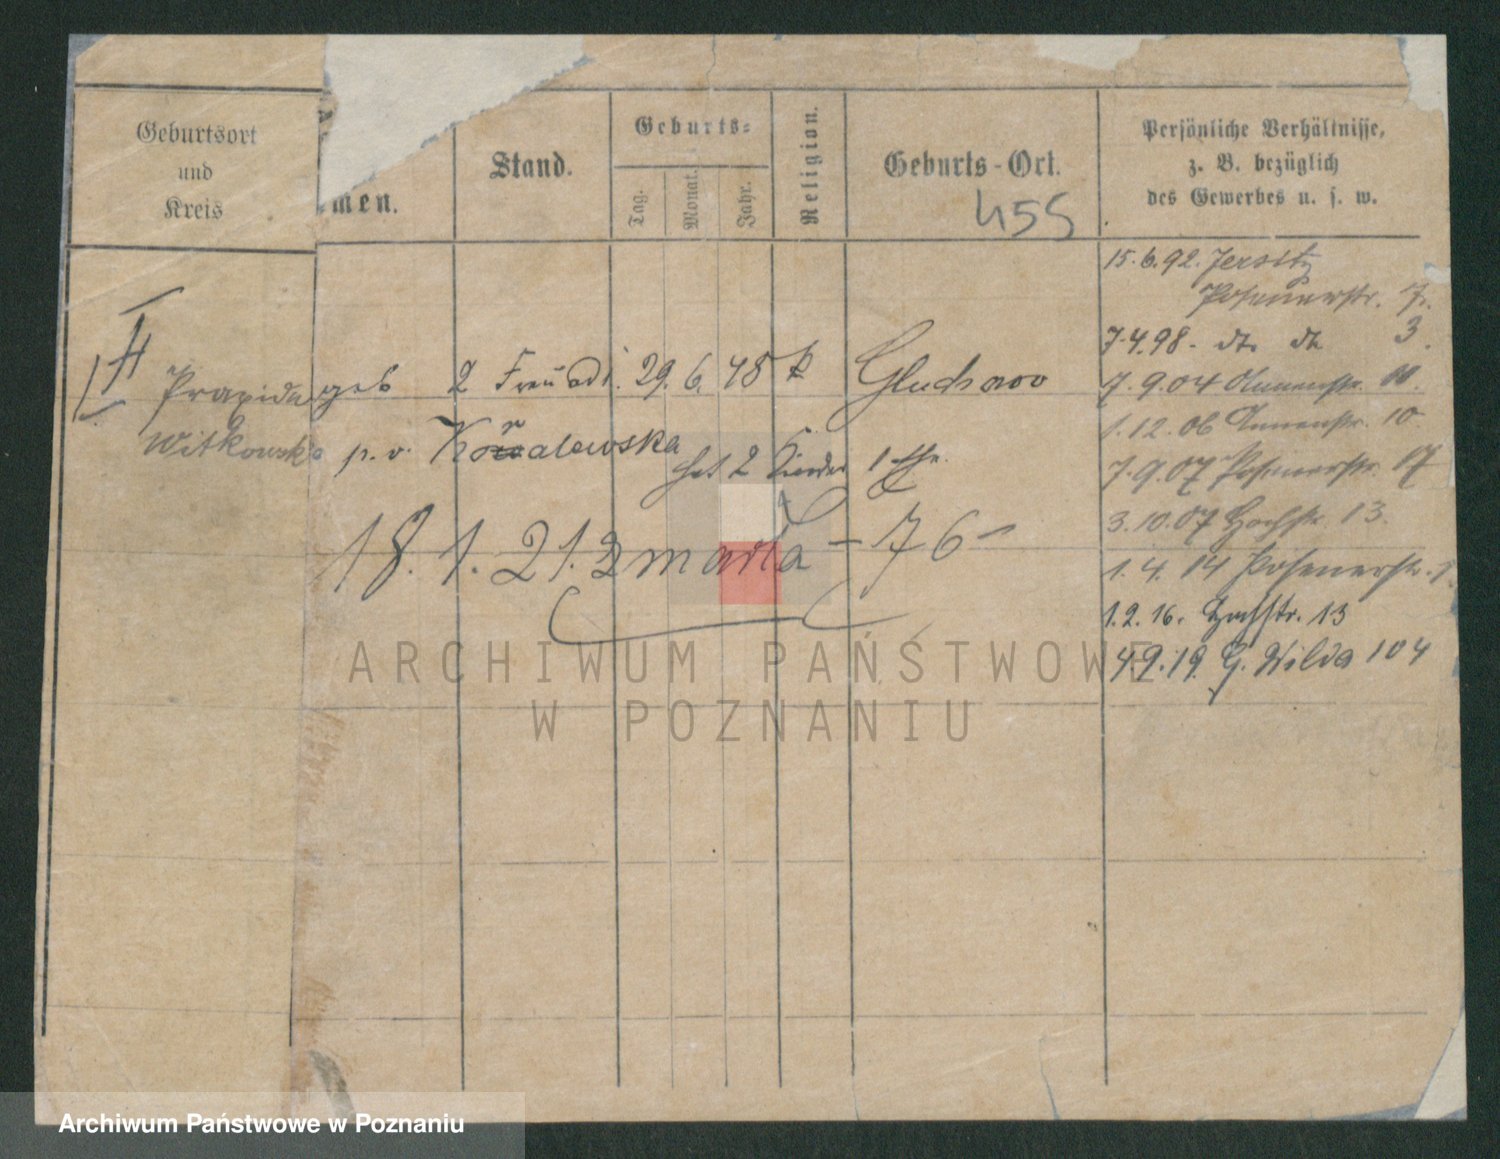 Geburtsort
und
Kreis
men.
Stand.
Geburts-
Tag.
Monat.
Jahr.
Religion.
Geburts-Ort.
455
Persönliche Verhältnisse,
z. B. bezüglich
des Gewerbes u. s. w.
15.6.92. Jersitz
Posenerstr. 7.
7.4.98. dto. do 3.
7.9.04 11.
1.12.06 10
7.9.07 Posenerstr. 17
3.10.07 Hochstr. 13.
1.4.14 Posenerstr.
1.2.16. Hochstr. 13
4.9.19. G. Wilda 104
Praxida geb 2 29.6.48 k
Witkowska p. v. Koralewska hat 2 Kinder 1
18.1.21. zmarła – 76 –
ARCHIWUM PAŃSTWOWE
W POZNANIU
Archiwum Państwowe w Poznaniu